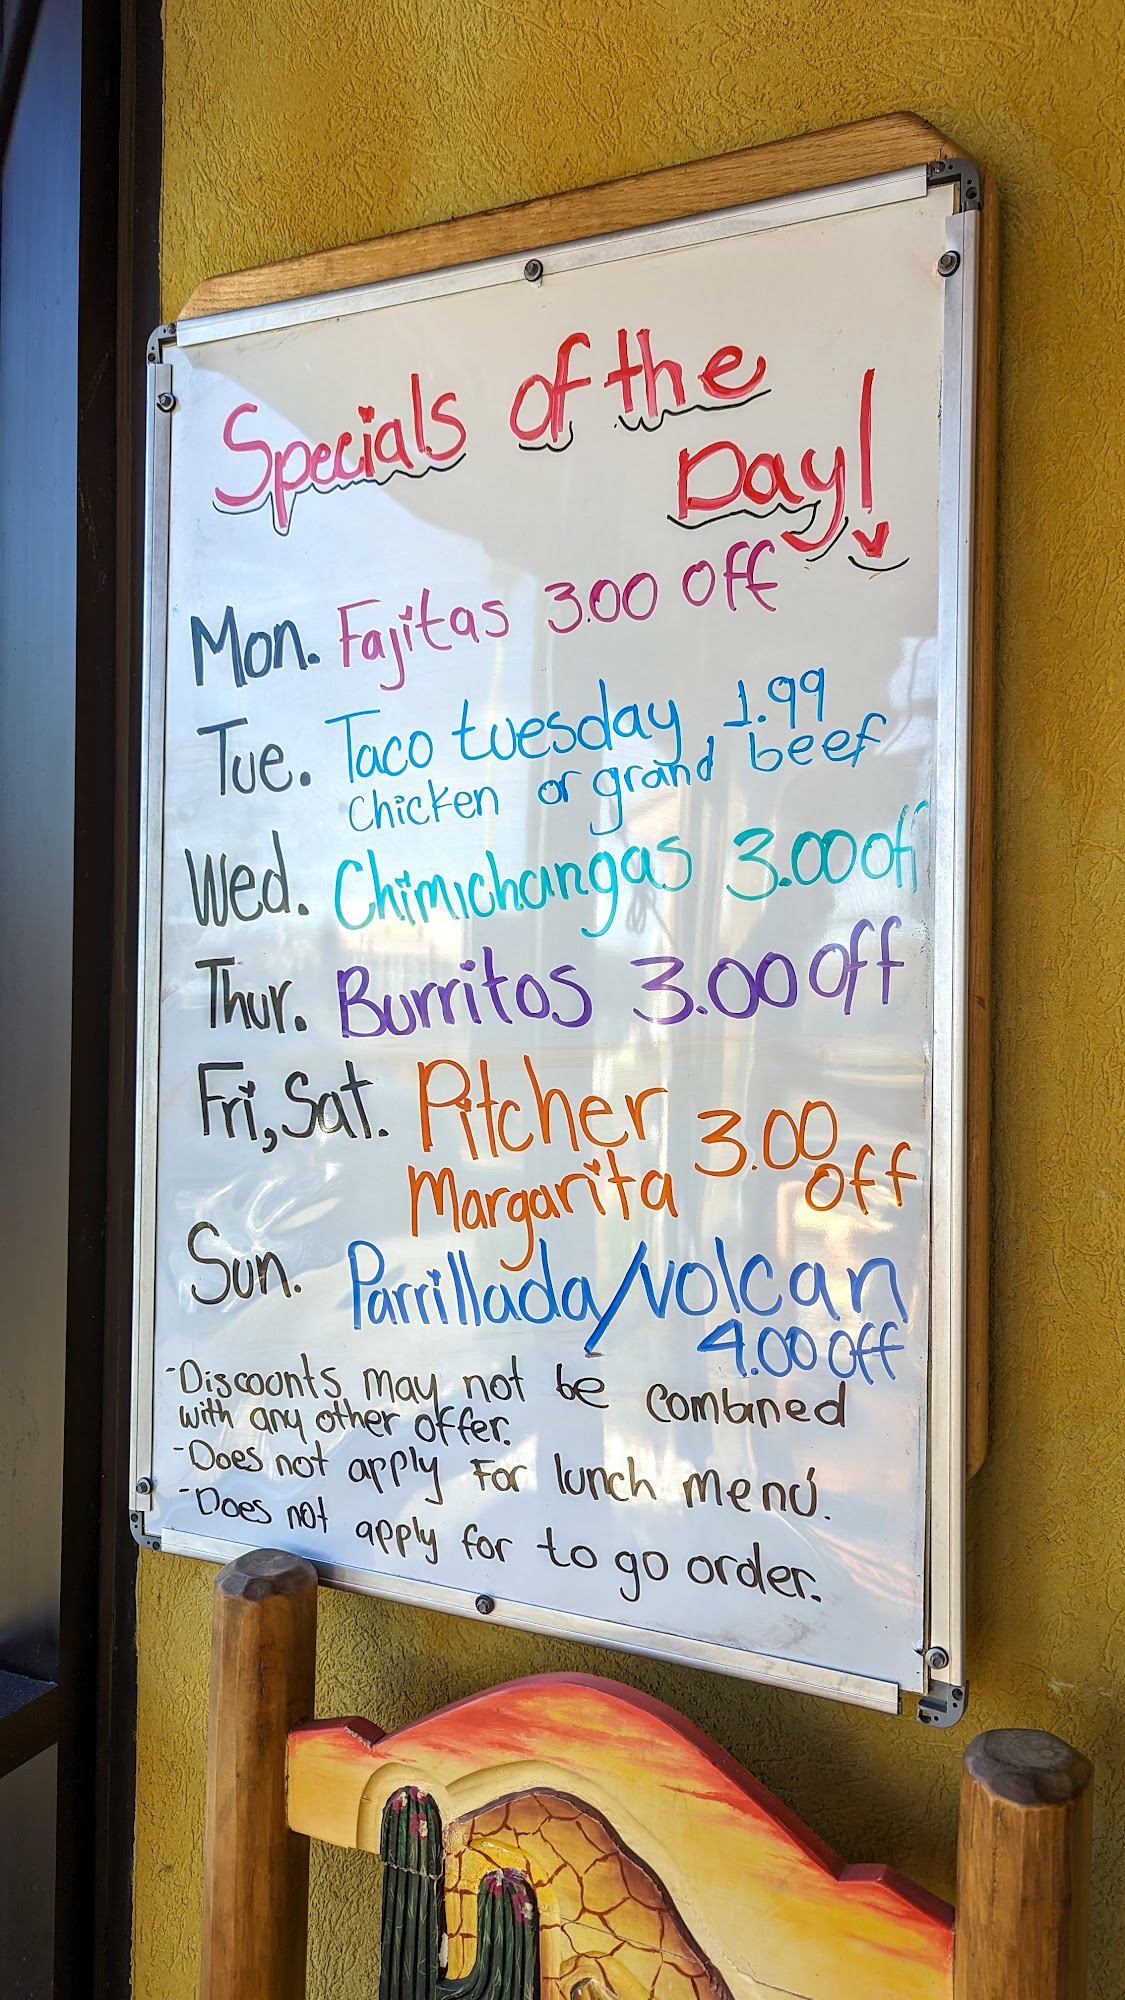 Specials of the
Day!
Mon. Fajitas 3.00 off
Tue. Taco tuesday, 1.99
Chicken or grand beef
Wed. Chimichangas 3.00 off
Thur. Burritos 3.00 off
Fri, Sat. Pitcher 3.00
Margarita off
Sun. Parrillada/volcan
4.00 off
-Discounts may not be combined
with any other offer.
-Does not apply for lunch menú.
-Does not apply for to go order.